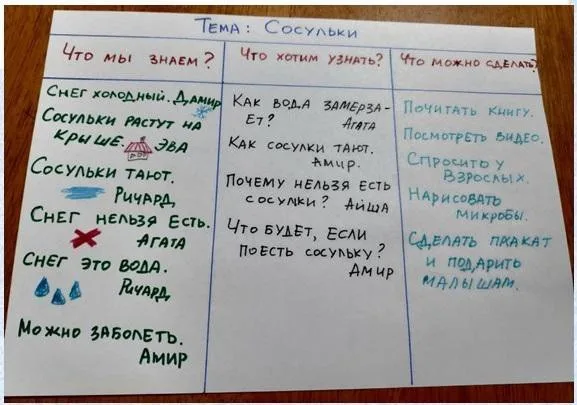 Тема: Сосульки
Что мы знаем?
Снег холодный. Дамир
Сосульки растут на
крыше. Эва
Сосульки тают.
Ричард
Снег нельзя есть.
Агата
Снег это вода.
Ричард
Можно заболеть.
Амир
Что хотим узнать?
Как вода замерза-
ет? Агата
Как сосулки тают.
Амир.
Почему нельзя есть
сосулки? Айша
Что будет, если
поесть сосульку?
Амир
Что можно сделать?
Почитать книгу.
Посмотреть видео.
Спросить у
взрослых.
Нарисовать
микробы.
Сделать плакат
и подарить
малышам.